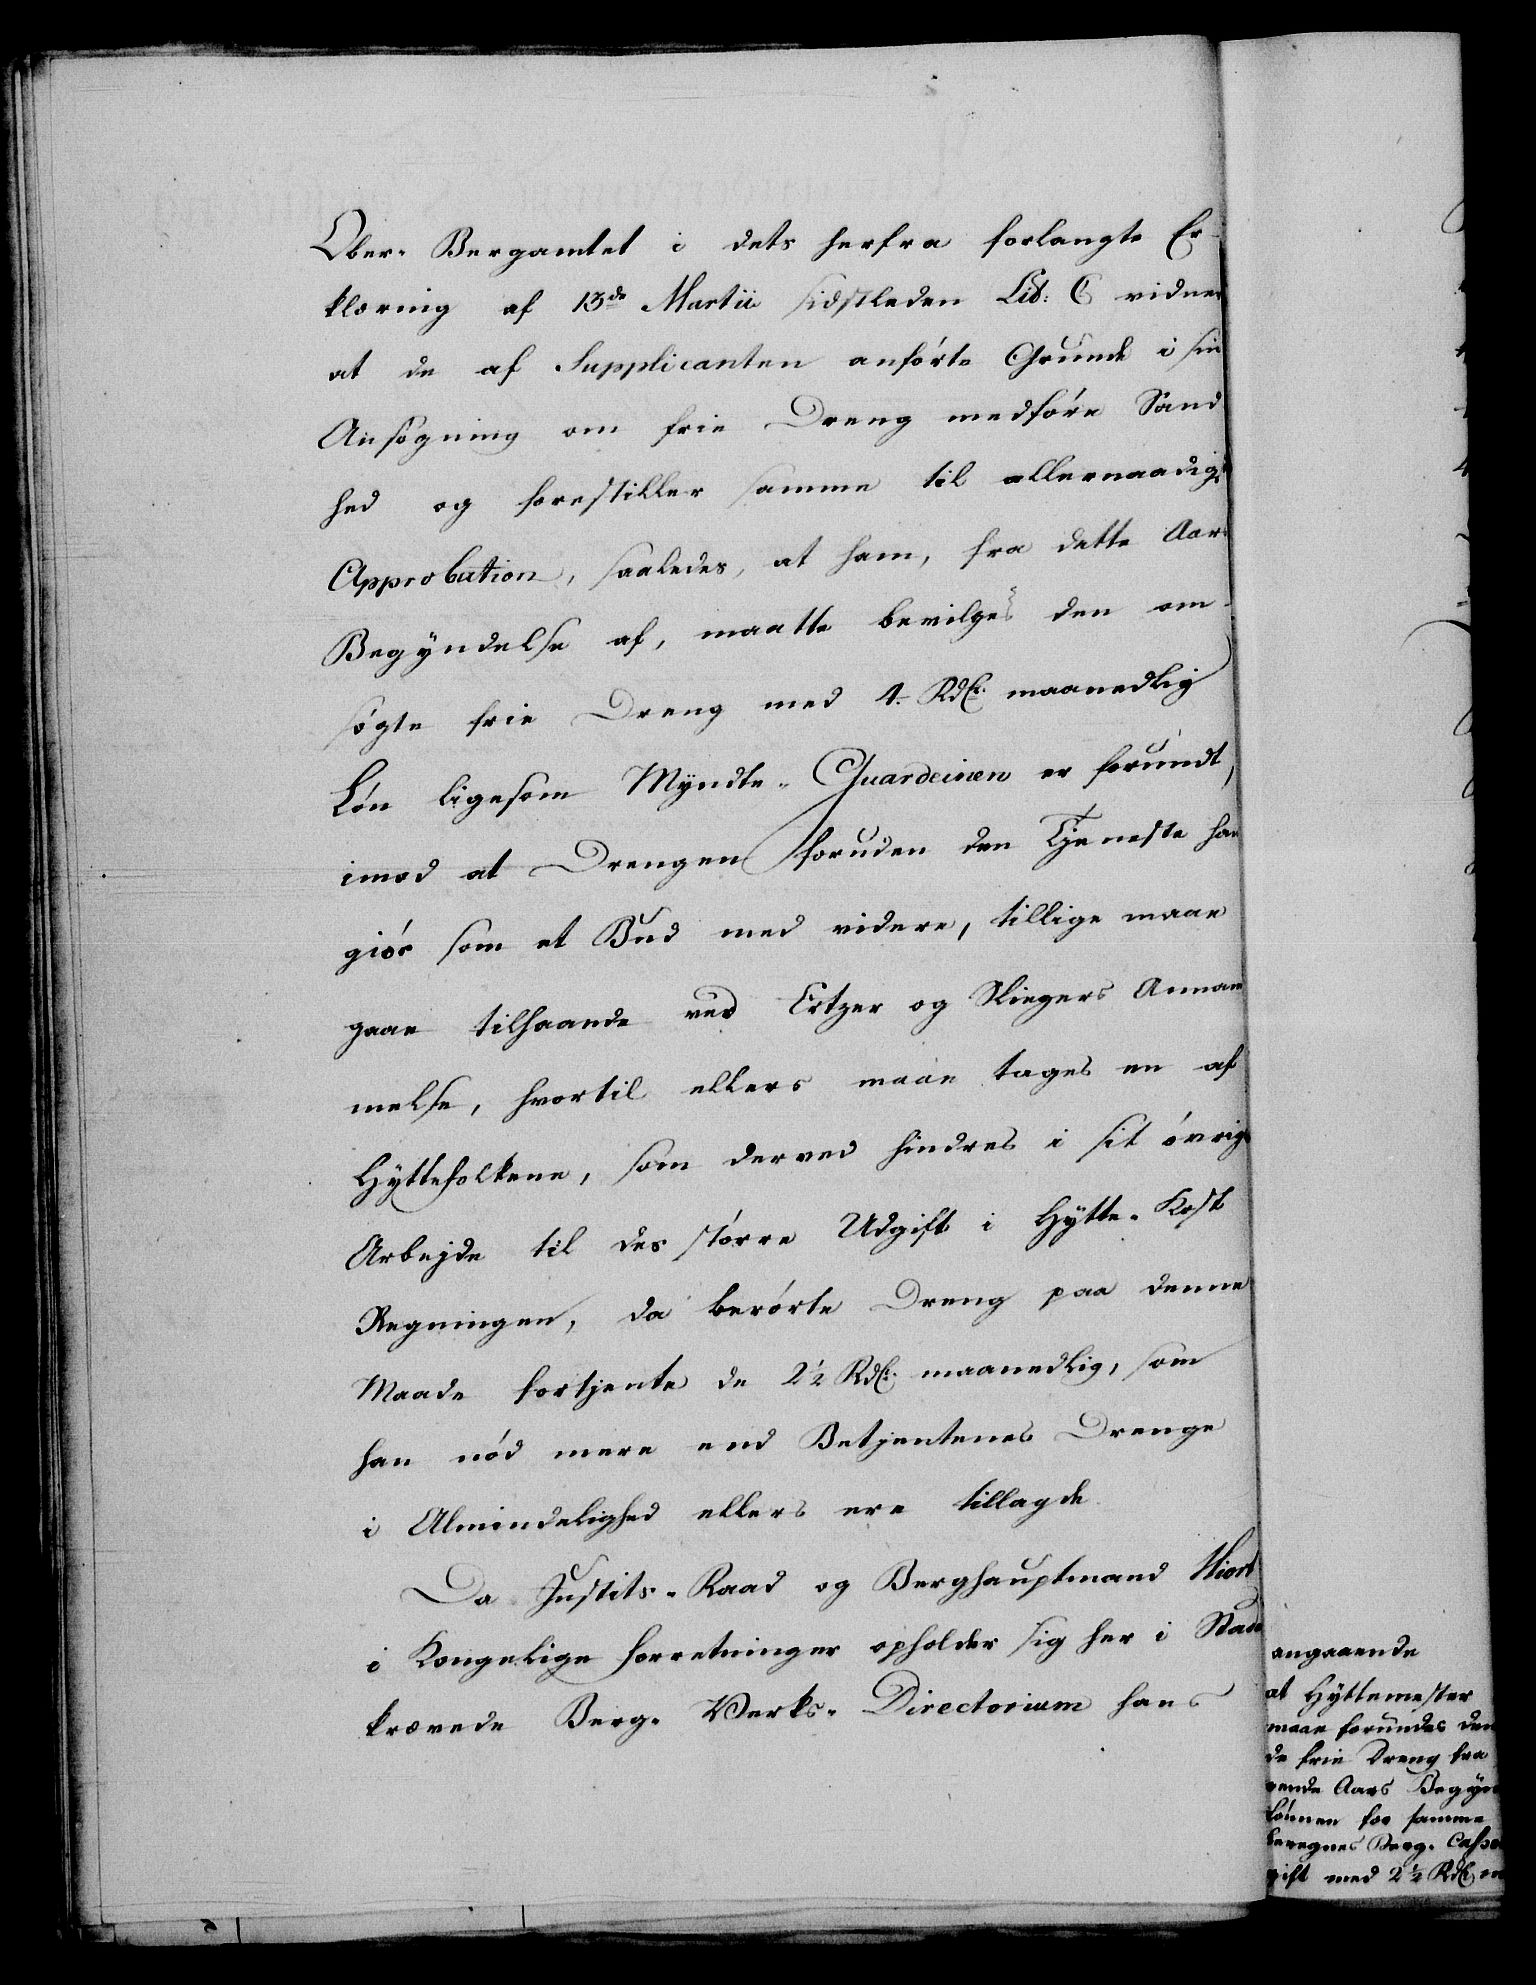 Ober-Bergamtet i dets herfra forlangte Er-
klæring af 13de Martii sidstleden Lit: C vidner
at de af Supplicanten anførte Grunde i sin
Ansøgning om frie Dreng medføre Sand
hed og forestiller samme til allernaadigst
Approbation, saaledes, at ham, fra dette Aars
Begyndelse af, maatte bevilges den om-
søgte frie Dreng med 4 Rdlr. maanedlig
Løn ligesom Myndte-Guardeinen er forundt,
imod at Drengen foruden den Tjeneste han
giør som et Bud med videre, tillige maae
gaae tilhaande ved Ertzer og Sliegers Annam
melse, hvortil ellers maae tages en af
Hyttefolkene, som derved hindres i sit øvrige
Arbejde til des større Udgift i Hytte-Kost
Regningen, da berørte Dreng paa denne
Maade fortjente de 2 1/2 Rdlr. maanedlig, som
han nød mere end Betjentenes Drenge
i Almindelighed ellers ere tillagde
Da Justits-Raad og Berghauptmand Hiort
i Kongelige Forretninger opholder sig her i Stade
krævede Berg-Værks-Directorium hans
angaaende
at Hyttemester
maae forundes den
de frie Dreng fra
vende Aars Begyn
Lønnen for samme
beregnes Berg-Casse
gift med 2 1/2 Rdlr m